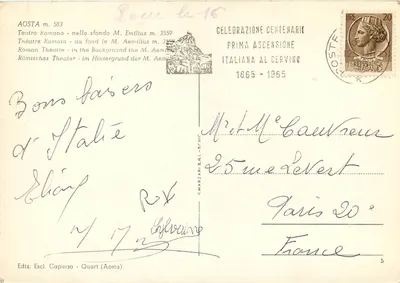 AOSTA m. 583
Teatro Romano - nello sfondo M. Emilius m. 3559
Théâtre Romain - au fond le M. Aemilius m. 3559
Roman Theater - in the Background the M. Aemilius
Römisches Theater - im Hintergrund der M. Aemilius
le 16
CELEBRAZIONE CENTENARIE
PRIMA ASCENSIONE
ITALIANA AL CERVINO
1865 - 1965
20
AOSTE
Bons baisers
d'Italie
Sylvaine
Mr et Me Cauvreux
25 rue Le Vert
Paris 20e
France
Ediz. Escl. Caperso - Quart (Aosta)
5